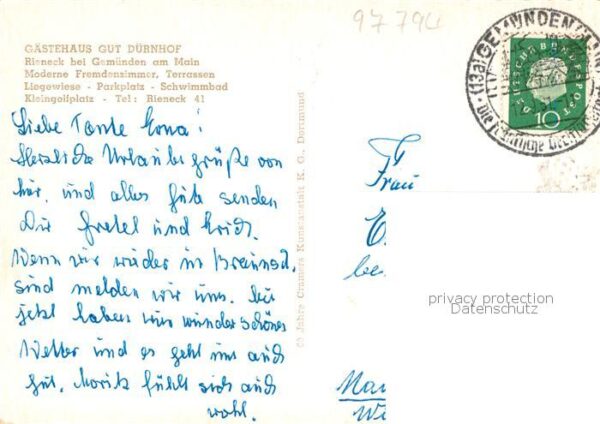 97 794
GÄSTEHAUS GUT DÜRNHOF
Rieneck bei Gemünden am Main
Moderne Fremdenzimmer, Terrassen
Liegewiese - Parkplatz - Schwimmbad
Kleingolfplatz - Tel: Rieneck 41
Liebe Tante Erna!
Herzliche Urlaubsgrüße von
hier, und alles Gute senden
Dir Gretel und Erich.
Wenn wir wieder in Braunschw.
sind melden wir uns. Bis
jetzt haben wir wunderschönes
Wetter und es geht uns auch
gut, Moritz fühlt sich auch
wohl.
60 Jahre Cramers Kunstanstalt K. G., Dortmund
(13a) GEMÜNDEN
DEUTSCHE BUNDESPOST
10
Frau
E
bei
privacy protection
Datenschutz